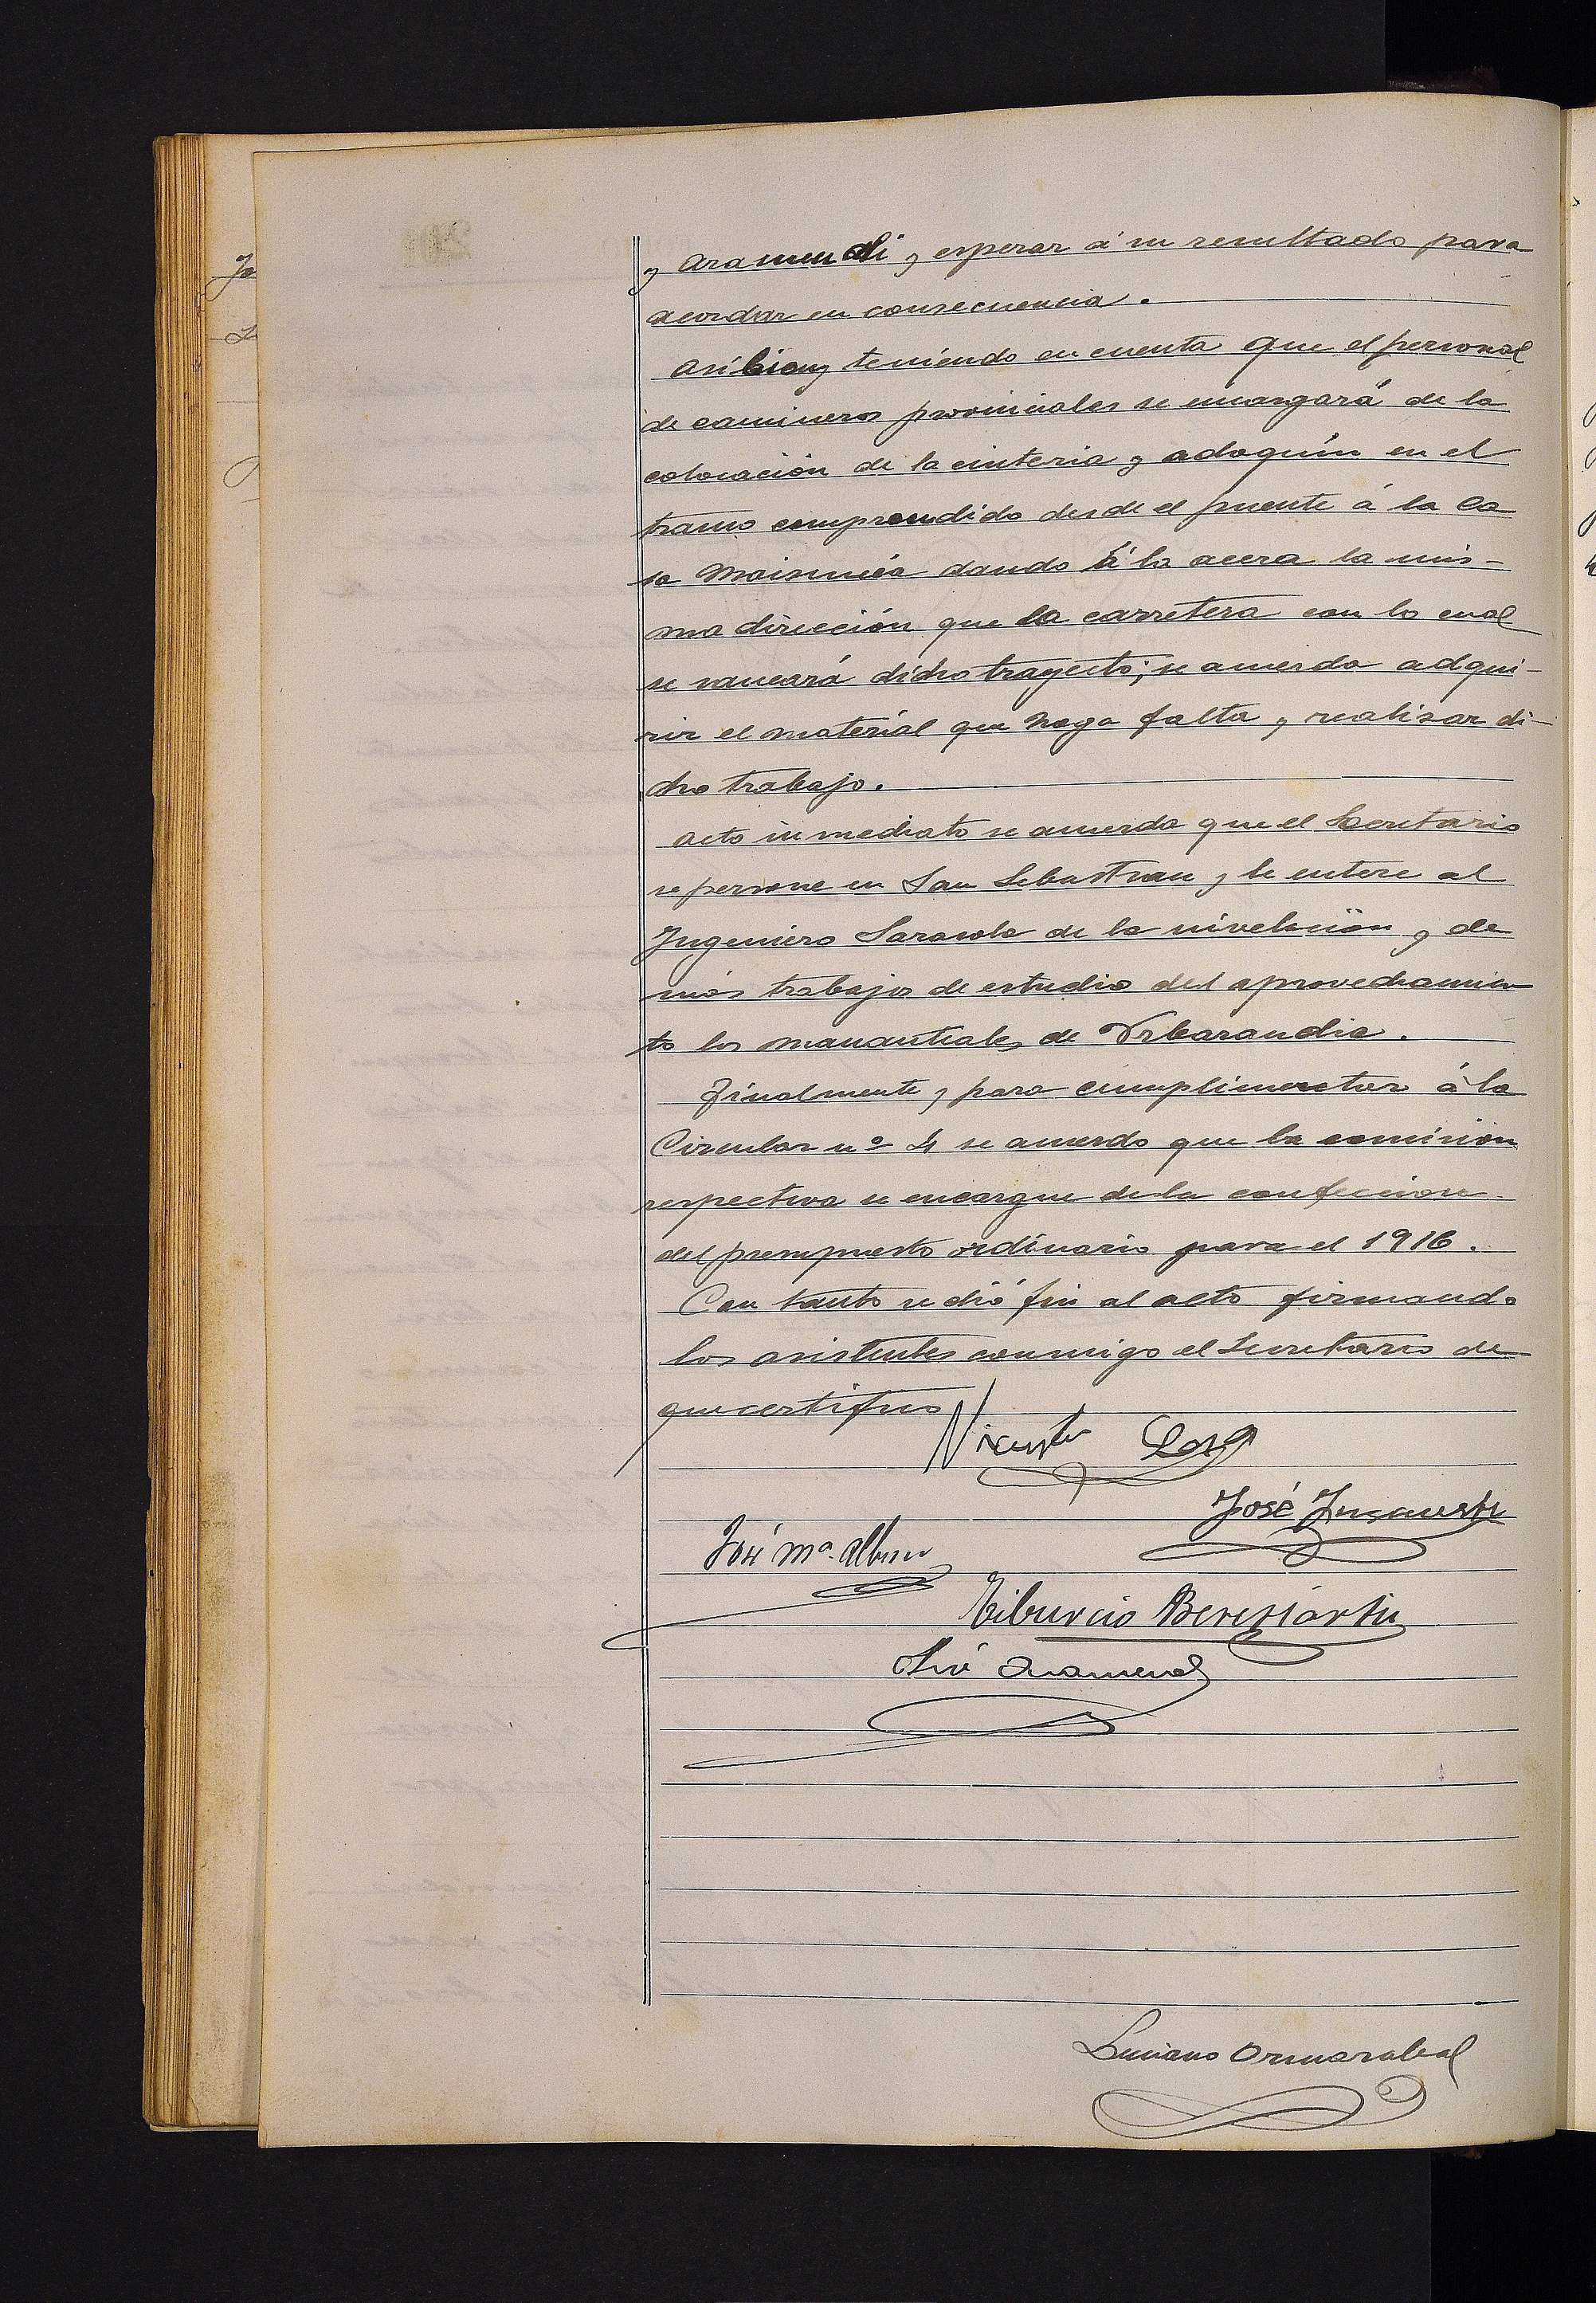 y Aramendi y esperar á su resultado para
acordar en consecuencia.
Asi bien y teniendo en cuenta que el personal
de camineros provinciales se encargará de la
colocación de la cinteria y adoquín en el
tramo comprendido desde el puente á la Ca
sa dando á la acera la mis-
ma dirección que la carretera con lo cual
se saneará dicho trayecto; se acuerda adqui-
rir el material que haga falta y realizar di-
cho trabajo.
Acto inmediato se acuerda que el Secretario
se persone en San Sebastian y le entere al
Ingeniero Sarasola de la nivelación y de
más trabajos de estudio del aprovechamien
to los manantiales de Urbarandia.
Finalmente y para cumplimentar á la
Circular nº 4 se acuerda que la comision
respectiva se encargue de la confeccion
del presupuesto ordinario para el 1916.
Con tanto se dió fin al acto firmando
los asistentes conmigo el Secretario de
que certifico
Vicente
José
José Mª
Tiburcio Beresiartu
José Aramendi
Luciano Ormazabal